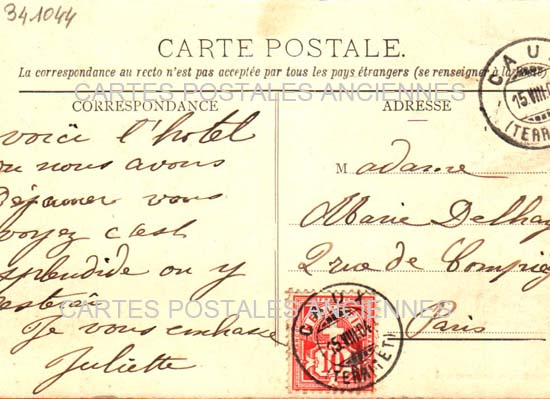 341044
CARTE POSTALE.
La correspondance au recto n'est pas acceptée par tous les pays étrangers (se renseigner à la
CARTES POSTALES ANCIENNES
CORRESPONDANCE
ADRESSE
CAUX
15.VIII.04
(TERRITET)
voici l'hotel
ou nous avons
Déjeuner vous
voyez c'est
splendide on y
est
Je vous embrasse
Juliette
Madame
Marie Delhay
2 rue de Compièg
Paris
CARTES POSTALES ANCIENNES
CAUX
15.VIII.04
(TERRITET)
10